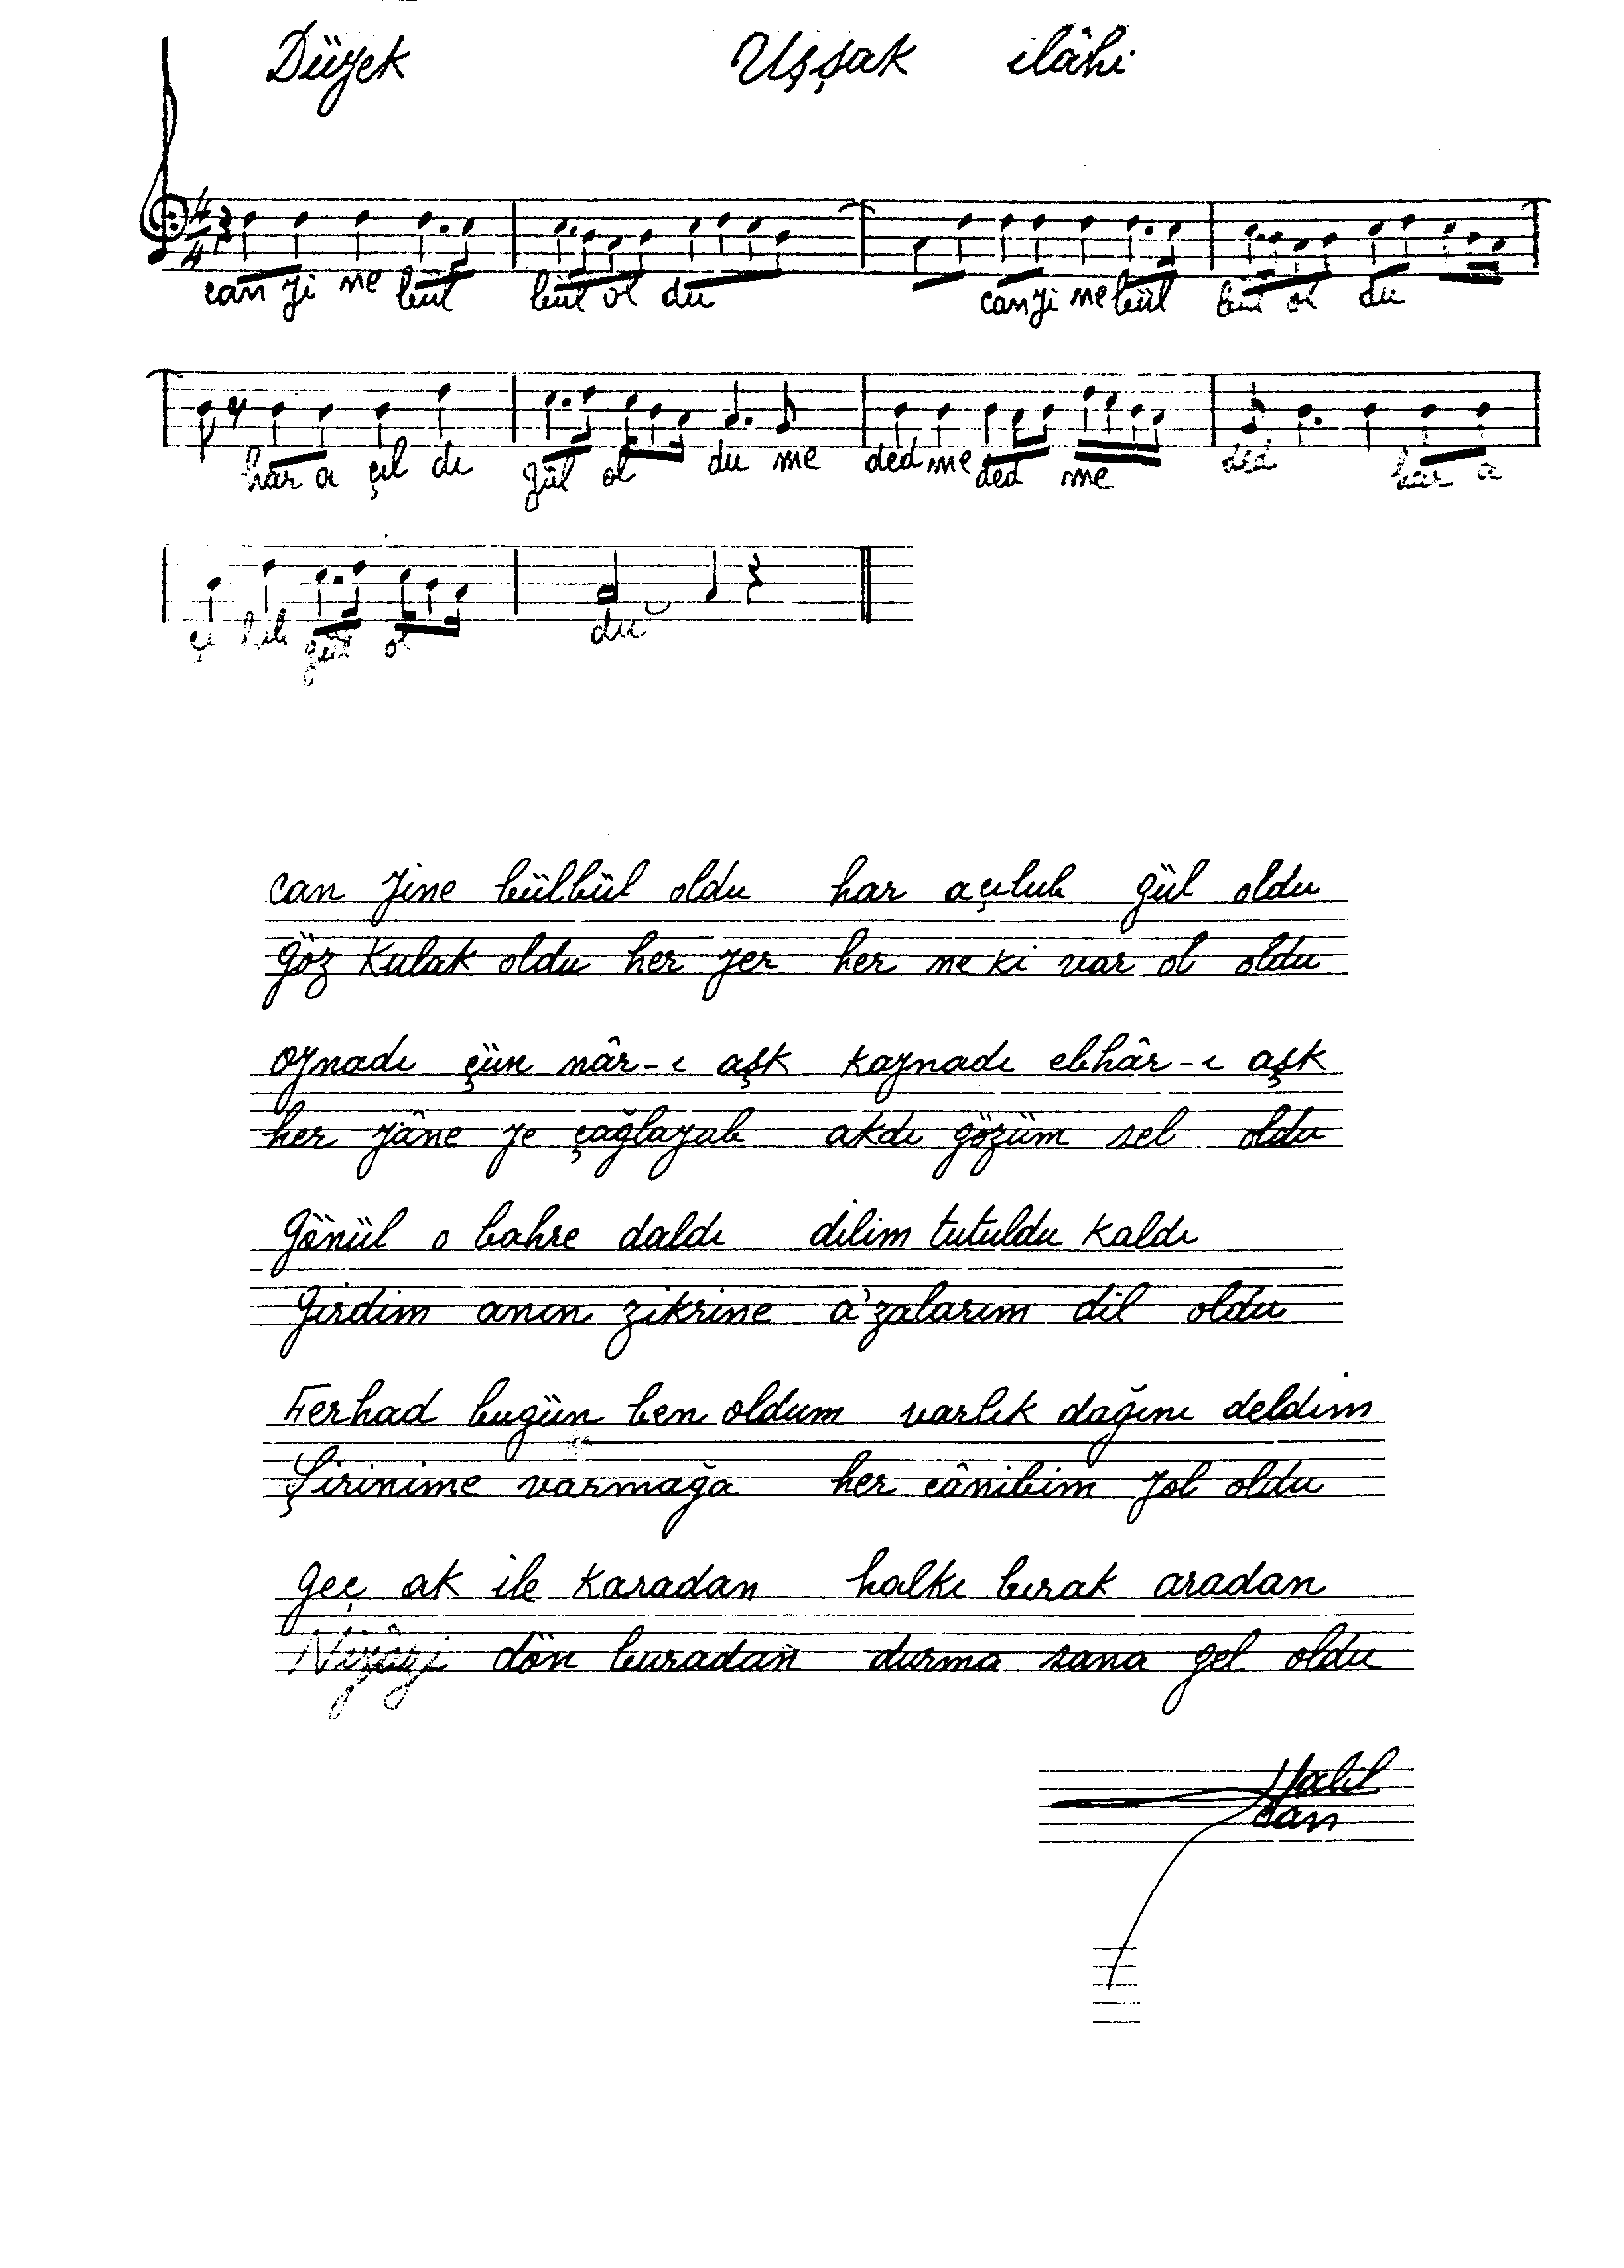 Düyek Uşşak ilâhi
4/4
can yi ne bül bül ol du can yi ne bül bül ol du
har a çıl dı gül ol du me ded me ded me ded har a
çı lub gül ol du
can yine bülbül oldu har açılub gül oldu
göz kulak oldu her yer her ne ki var ol oldu
oynadı çün nâr-ı aşk kaynadı ebhâr-ı aşk
her yâne ye çağlayub akdı gözüm sel oldu
gönül o bahre daldı dilim tutuldu kaldı
girdim anın zikrine a'zalarım dil oldu
Ferhad bugün ben oldum varlık dağını deldim
Şirinime varmağa her cânibim yol oldu
geç ak ile karadan halkı bırak aradan
Niyâzi dön buradan durma sana gel oldu
Halil
can